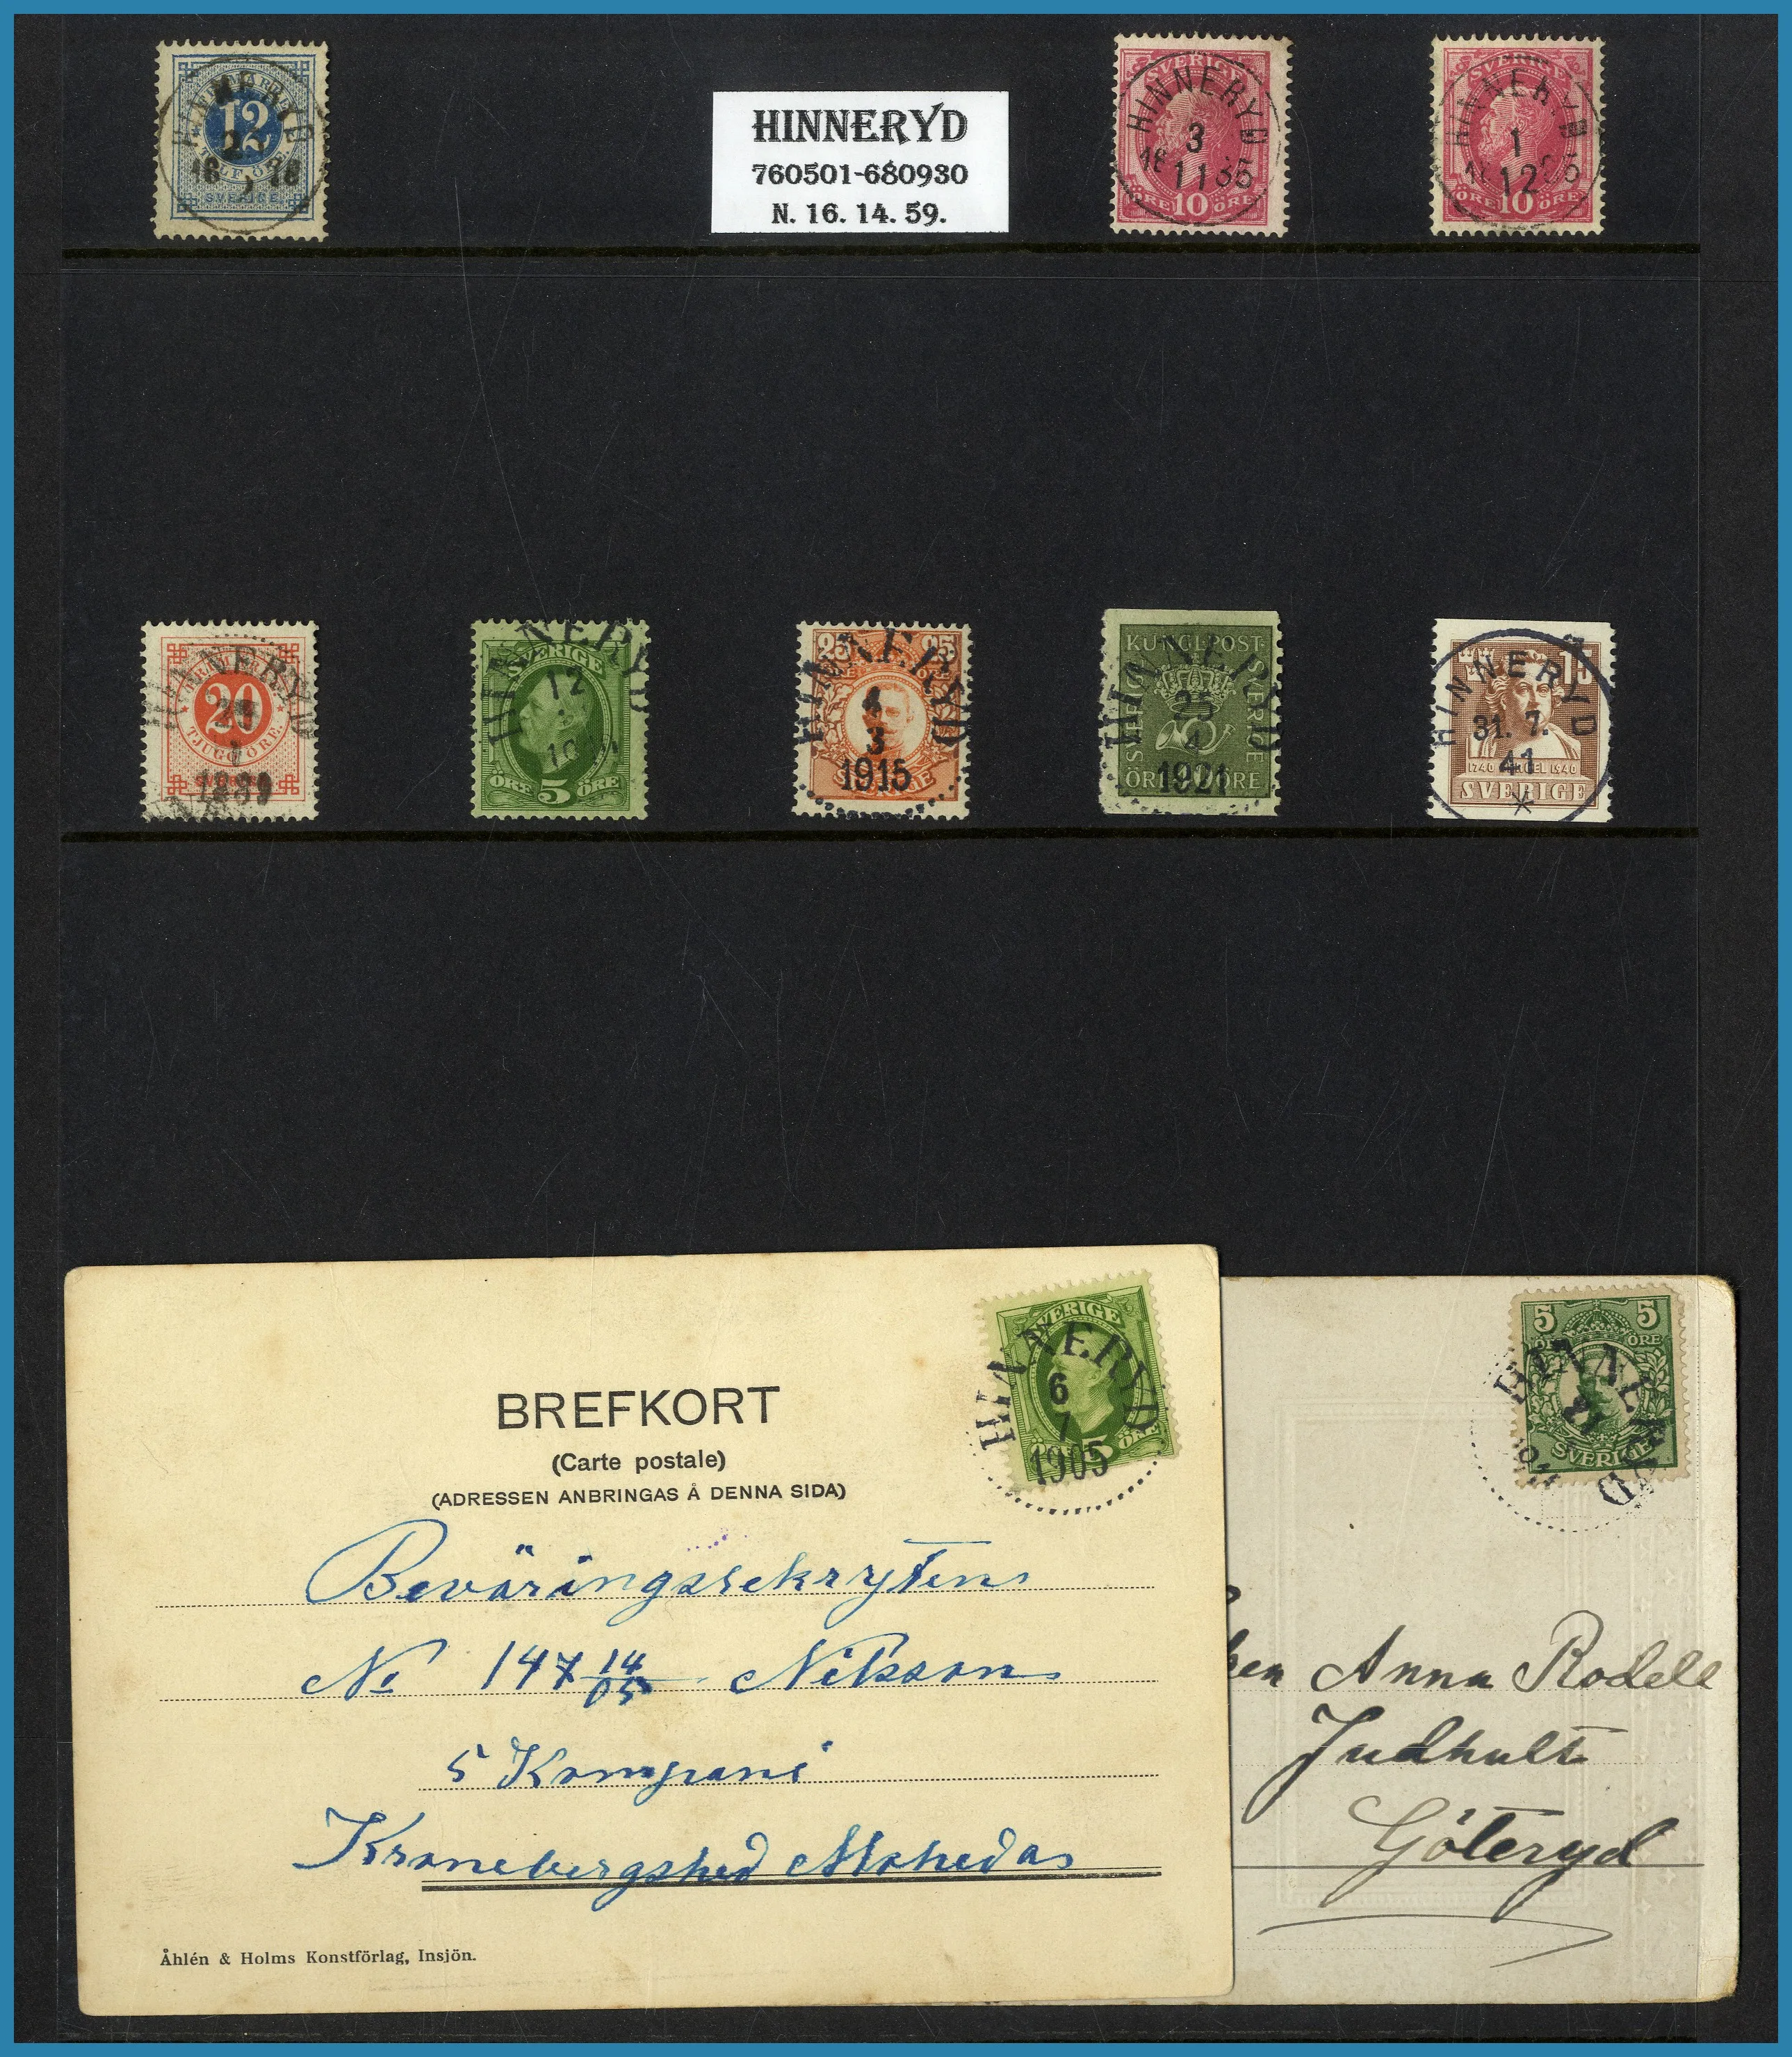 HINNERYD
12
SVERIGE
HINNERYD
760501-680930
N. 16. 14. 59.
SVERIGE
HINNERYD
3
11
10
ÖRE ÖRE
SVERIGE
HINNERYD
1
12
10
ÖRE ÖRE
HINNERYD
20
TJUGO ÖRE
HINNERYD
SVERIGE
12
ÖRE 5 ÖRE
25 25
HINNERYD
4
3
1915
KUNGL POST
HINNERYD
25
4
1921
15
HINNERYD
31. 7.
41
1740 1940
SVERIGE
SVERIGE
HINNERYD
6
7
1905
5 ÖRE
BREFKORT
(Carte postale)
(ADRESSEN ANBRINGAS Å DENNA SIDA)
Beväringsrekryten
No 147 14/05 Nilsson
5 Kompani
Kronebergshed Moheda
Åhlén & Holms Konstförlag, Insjön.
5 5
ÖRE
HINNERYD
SVERIGE
Anna Rodell
Judhult
Göteryd